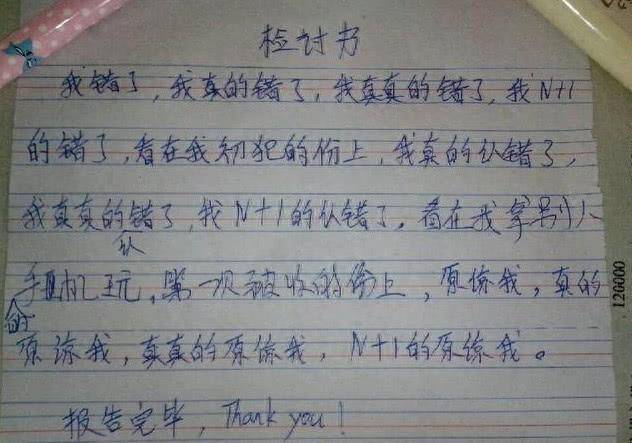 检讨书
我错了，我真的错了，我真真的错了，我N+1
的错了，看在我初犯的份上，我真的认错了，
我真真的认错了，我N+1的认错了，看在我拿别人
的手机玩，第一次被收的份上，原谅我，真的
原谅我，真真的原谅我，N+1的原谅我。
报告完毕，Thank you！
120000